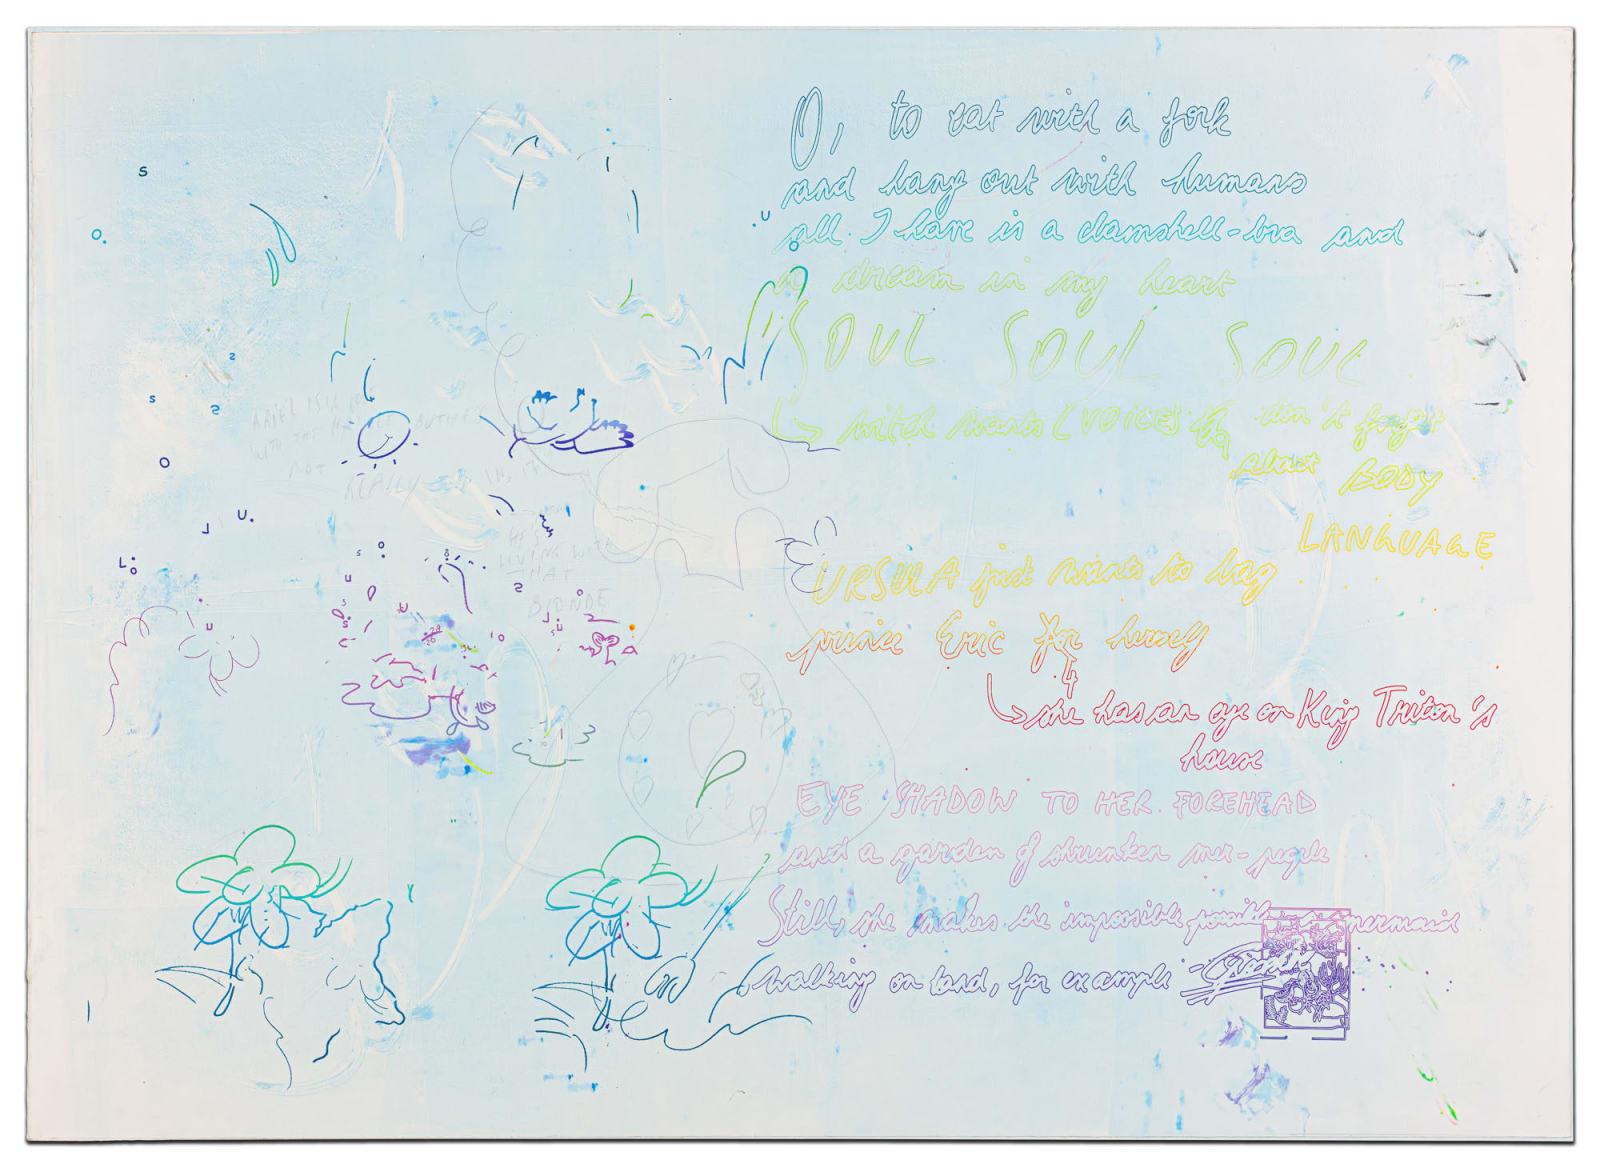 O, to eat with a fork
and hang out with humans
all I have is a clamshell-bra and
a dream in my heart
SOUL SOUL SOUL
witch wants (VOICES) don't forget
about BODY
LANGUAGE
URSULA just wants to bag
prince Eric for herself
4
she has an eye on King Triton's
house
EYE SHADOW TO HER FOREHEAD
and a garden of shrunken mer-people
Still, she makes the impossible possible mermaid
walking on land, for example
ARIEL IS IN LOVE
WITH THE
NOT REALLY INTO
LIVING WITH
THAT
BLONDE